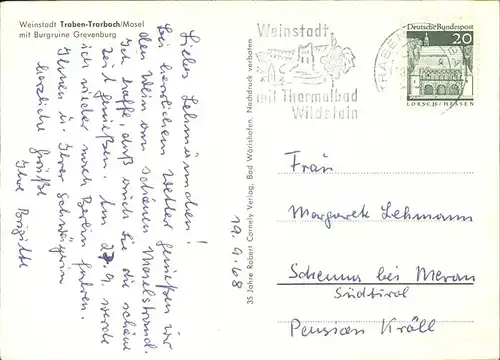 Weinstadt Traben-Trarbach/Mosel
mit Burgruine Grevenburg
Liebes Lehmännchen!
Bei herrlichem Wetter genießen wir
den Wein am schönen Moselstrand.
Ich hoffe, daß auch Sie die schöne
Zeit genießen. Am 27.9. werde
ich wieder nach Berlin fahren.
Ihnen u. Ihrer Schwägerin
herzliche Grüße
Ihre Brigitte
19.9.68
35 Jahre Robert Cornely Verlag, Bad Wörishofen. Nachdruck verboten
Weinstadt
mit Thermalbad
Wildstein
TRABEN
Deutsche Bundespost
20
LORSCH/HESSEN
Frau
Margarete Lehmann
Schenna bei Meran
Südtirol
Pension Kröll